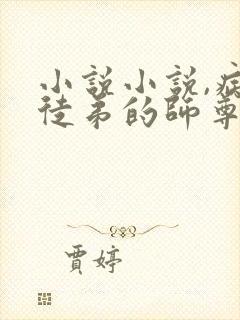 小說小說,病
徒弟的師尊
賈婷